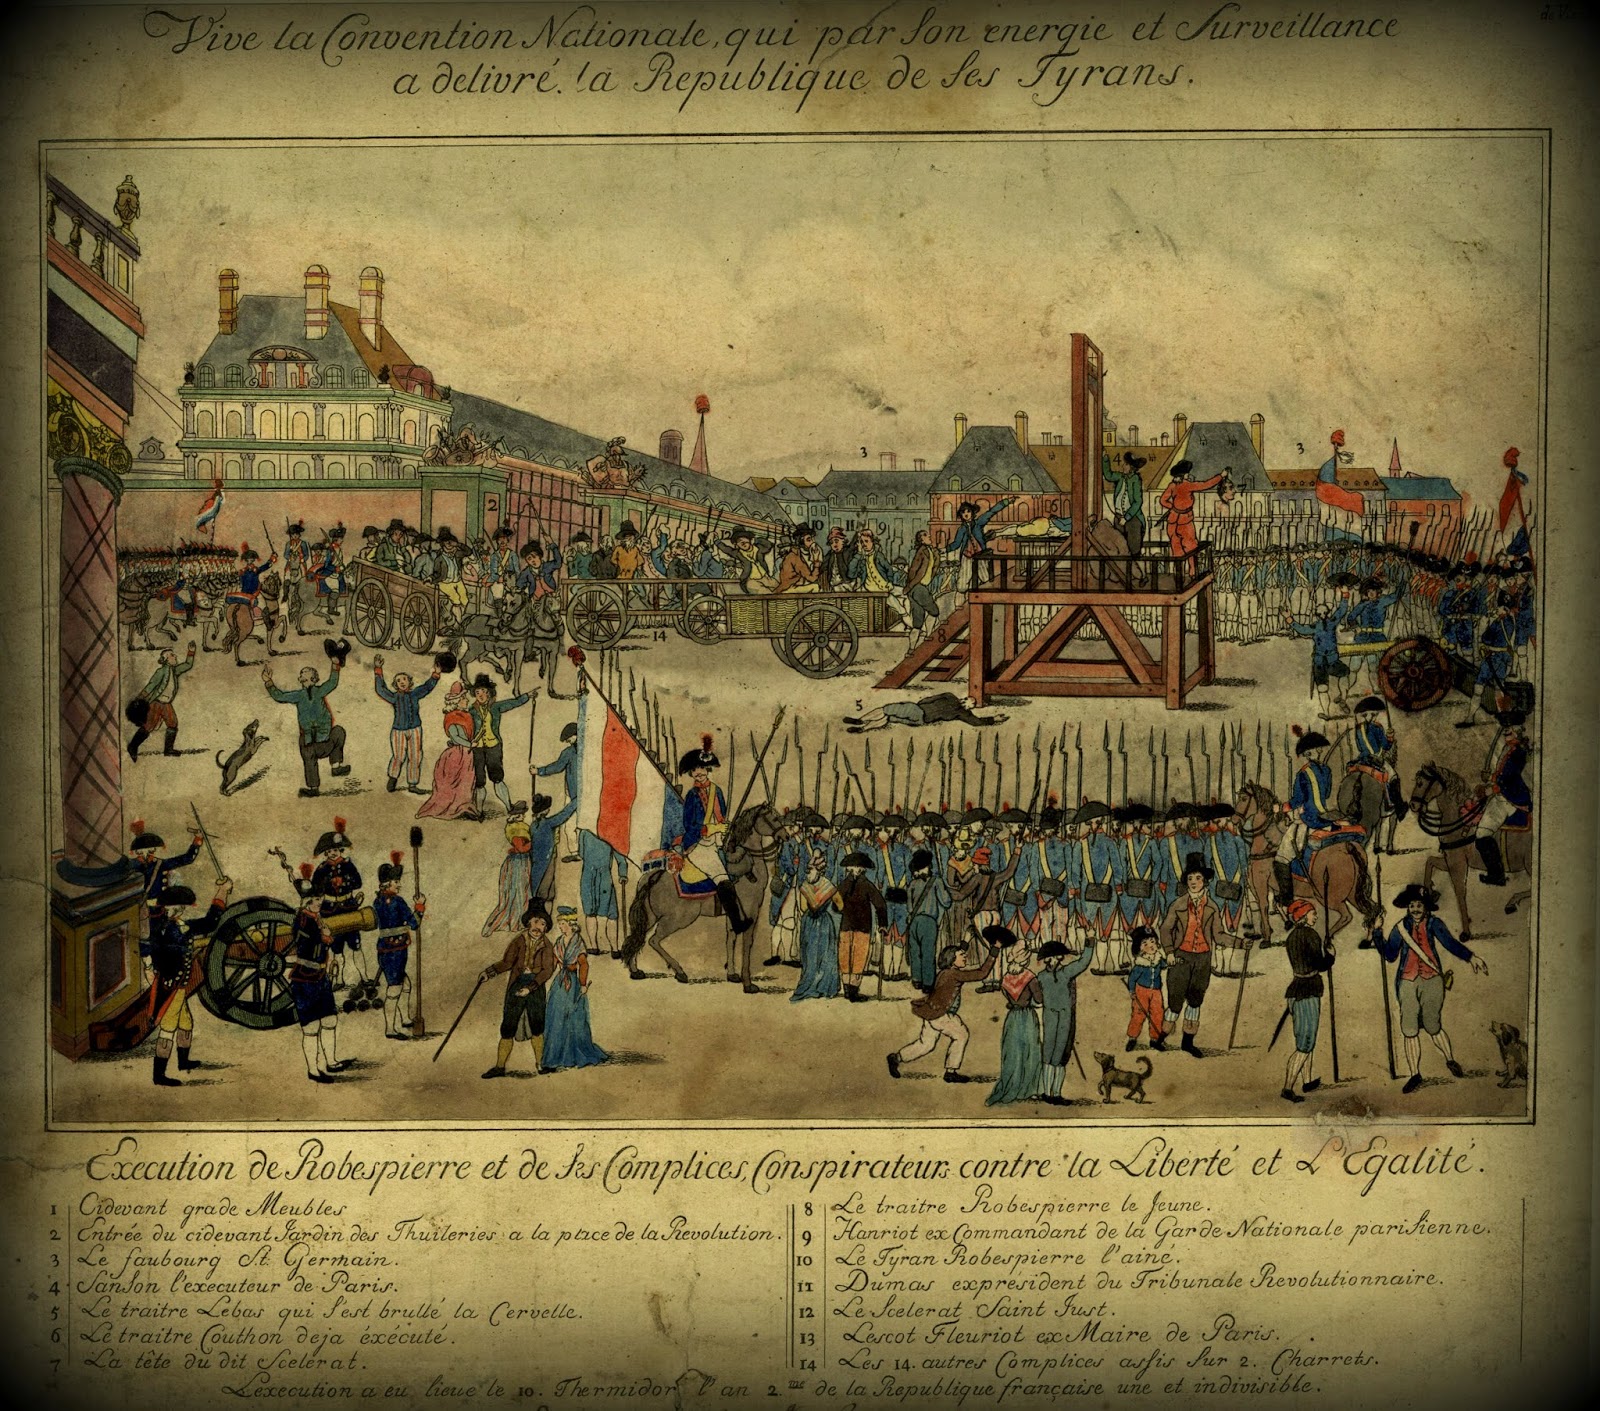 Vive la Convention Nationale, qui par son energie et Surveillance
a delivré la Republique de ses Tyrans.
2
3
3
4
6
7
10
11
9
12
14
14
8
5
Execution de Robespierre et de ses Complices, Conspirateurs contre la Liberté et L'Egalité.
1 Cidevant grade Meubles
2 Entrée du cidevant Jardin des Thuileries a la place de la Revolution.
3 Le faubourg St. Germain.
4 Sanson l'executeur de Paris.
5 Le traitre Lebas qui s'est brullé la Cervelle.
6 Le traitre Couthon deja éxécuté.
7 La tête du dit Scelerat.
8 Le traitre Robespierre le Jeune.
9 Hanriot ex Commandant de la Garde Nationale parisienne.
10 Le Tyran Robespierre l'ainé.
11 Dumas exprésident du Tribunale Revolutionnaire.
12 Le Scelerat Saint Just.
13 Lescot Fleuriot ex Maire de Paris.
14 Les 14. autres Complices assis sur 2. Charrets.
L'execution a eu lieue le 10. Thermidor l'an 2.me de la Republique française une et indivisible.